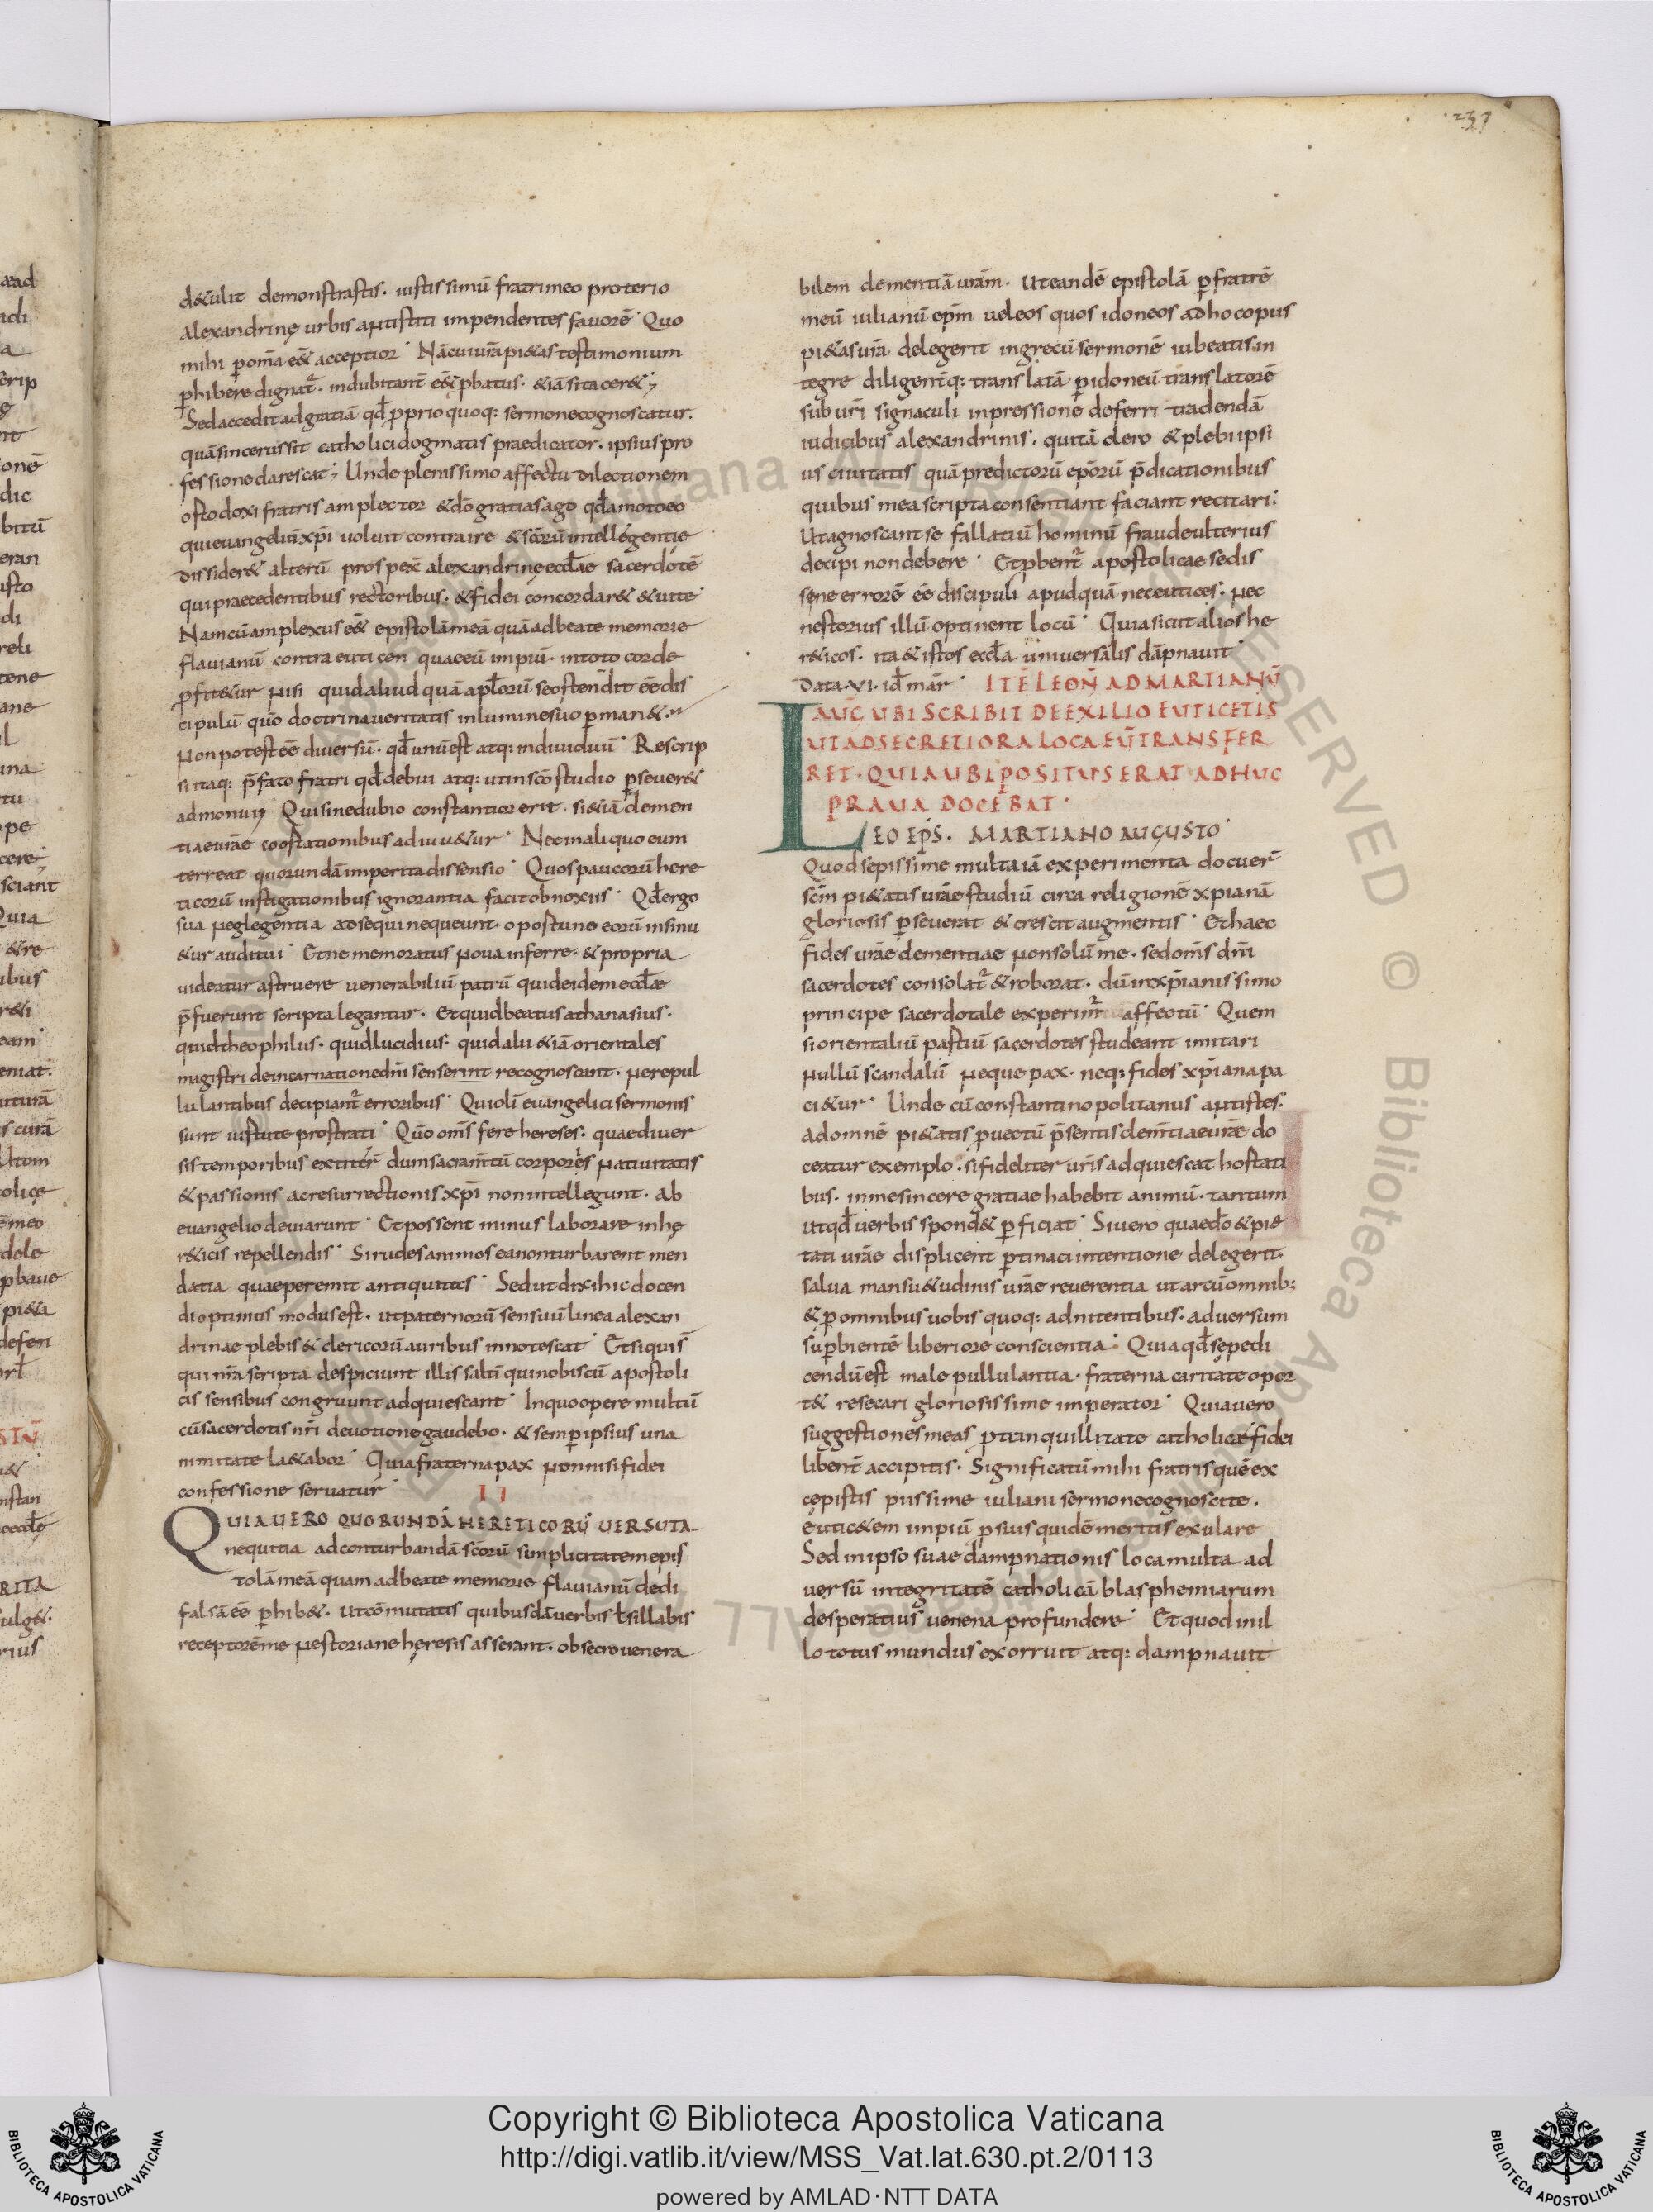 231
detulit demonstrastis. iustissimū fratri meo proterio
alexandrinę urbis antistiti impendentes fauorē. Quo
mihi p om̄a eēt acceptior. Nā cui ur̄a pietas testimonium
phibere dignat̄. indubitant̄ eēt pbatus. etiā si taceret;
Sed accedit ad gratiā qđ pprio quoq: sermone cognoscatur.
quā sincerus sit catholici dogmatis praedicator. ipsius pro
fessione clarescat; Unde plenissimo affectu dilectionem
ostodoxi fratris amplector & dō gratias ago qđ amoto eo
qui euangelio xp̄i uoluit contraire & scōrū intellegentię
dissideret alterū prospexit alexandrinę eccl̄ae sacerdotē
qui praecedentibus rectoribus. & fidei concordaret & uitę.
Nam cū amplexus eēt epistolā meā quā ad beate memorie
flauianū contra euticen quaeeū impiū. in toto corde
pfitetur nisi quid aliud quā apl̄orū se ostendit eē dis
cipulū quo doctrina ueritatis in lumine suo pmanet.
Non potest eē diuersū. qđ unū est atq: indiuiduū. Rescrip
si itaq: p̄fato fratri qđ debui atq: ut in scō studio pseueret
admonui; Qui sine dubio constantior erit. si etiā clemen
tiae ur̄ae coostationibus adiuuetur. Nec in aliquo eum
terreat quorundā imperita dissensio. Quos paucorū here
ticorū instigationibus ignorantia facit obnoxios. Qđ ergo
sua neglegentia adsequi nequeunt. opostune eorū insinu
etur auditui. Et ne memoratus noua inferre. & propria
uideatur astruere uenerabiliū patrū qui deidem eccl̄ae
p̄fuerunt scripta legantur. Et quid beatus athanasius.
quid theophilus. quid lucidius. quid alii etiā orientales
magistri de incarnatione dn̄i senserint recognoscant. ne repul
lulantibus decipiant̄ erroribus. Qui olī euangelici sermonis
sunt uistute prostrati. Quō om̄s fere hereses. quae diuer
sis temporibus extiter̄ dum sacram̄tū corporęs natiuitatis
& passionis ac resurrectionis xp̄i non intellegunt. ab
euangelio deuiarunt. Et possent minus laborare in hę
reticis repellendis. Si rudes animos ea non turbarent men
datia quae peremit antiquitas. Sed ut dixi hic docen
di optimus modus est. ut paternorū sensuū linea alexan
drinae plebis & clericorū auribus innotescat. Et si quis
qui nr̄a scripta despiciunt illis saltī qui nobiscū apostoli
cis sensibus congruunt adquiescant. In quo opere multū
cū sacerdotis nr̄i deuotione gaudebo. & semp ipsius una
nimitate laetabor. Quia fraterna pax non nisi fidei
confessione seruatur. II
QUIA UERO QUORUNDĀ HERETICORŪ UERSUTA
nequitia ad conturbandā scōrū simplicitatem epis
tolā meā quam ad beate memorie flauianū dedi
falsā eē phibet. ut cōmutatis quibusdā uerbis ł sillabis
receptorē me nestoriane hęresis asserant. obsecro uenera
bilem clementiā ur̄am. Ut eandē epistolā p fratrē
meū iulianū ep̄m uel eos quos idoneos ad hoc opus
pietas ur̄a delegerit in grecū sermonē iubeatis in
tegre diligentq: translatā p idoneū translatorē
sub ur̄i signaculi inpressione deferri tradendā
iudicibus alexandrinis. qui tā clero & plebi ipsi
us ciuitatis quā predictorū ep̄orū p̄dicationibus
quibus mea scripta consentiant faciant recitari.
Ut agnoscant se fallatiū hominū fraude ulterius
decipi non debere. Et pbent̄ apostolicae sedis
sene errorē eē discipuli apud quā nec eutices. nec
nestorius illū optinent locū. Quia sicut alios he
reticos. ita & istos eccl̄a uniuersalis dāpnauit.
Data. VI. id̄ mar̄. ITĒ LEON̄ AD MARTIANŪ
AUG UBI SCRIBIT DE EXILIO EUTICETIS
UT AD SECRETIORA LOCA EŪ TRANSFER
RET. QUIA UBI POSITUS ERAT ADHUC
PRAUA DOCEBAT.
LEO EP̄S. MARTIANO AUGUSTO.
Quod sepissime multa iā experimenta docuer̄
scm̄ pietatis ur̄ae studiū circa religionē xpianā
gloriosis pseuerat & crescit augmentis. Et haec
fides ur̄ae clementiae non solū me. sed om̄s dn̄i
sacerdotes consolat̄ & roborat. dū in xp̄ianissimo
principe sacerdotale experim̄r affectū. Quem
si orientaliū pastiū sacerdotes studeant imitari
nullū scandalū neque pax. neq: fides xp̄iana pa
cietur. Unde cū constantinopolitanus antistes
ad omnē pietatis puectū p̄sentis clem̄tiae ur̄ae do
ceatur exemplo. si fideliter ur̄is adquiescat hostati
bus. in me sincere gratiae habebit animū. tantum
ut qđ uerbis spondet pficiat. Si uero quae dō & pie
tati ur̄ae displicent ptinaci intentione delegerit.
salua mansuetudinis ur̄ae reuerentia utar cū omnib;
& p omnibus uobis quoq: adnitentibus. aduersum
supbientē liberiore conscientia. Quia qđ sępe di
cendū est male pullulantia. fraterna caritate opor
tet resecari gloriosissime imperator. Quia uero
suggestiones meas p tranquillitate catholicae fidei
libent̄ accipitis. Significatū mihi fratris quē ex
cepistis piissime iuliani sermone cognoscite.
euticetem impiū p suis quidē meritis exulare
Sed in ipso suae dampnationis loca multa ad
uersū integritatē catholicā blasphemiarum
desperatius uenena profundere. Et quod in il
lo totus mundus exorruit atq: dampnauit
Copyright © Biblioteca Apostolica Vaticana
http://digi.vatlib.it/view/MSS_Vat.lat.630.pt.2/0113
powered by AMLAD·NTT DATA
BIBLIOTECA APOSTOLICA VATICANA
BIBLIOTECA APOSTOLICA VATICANA